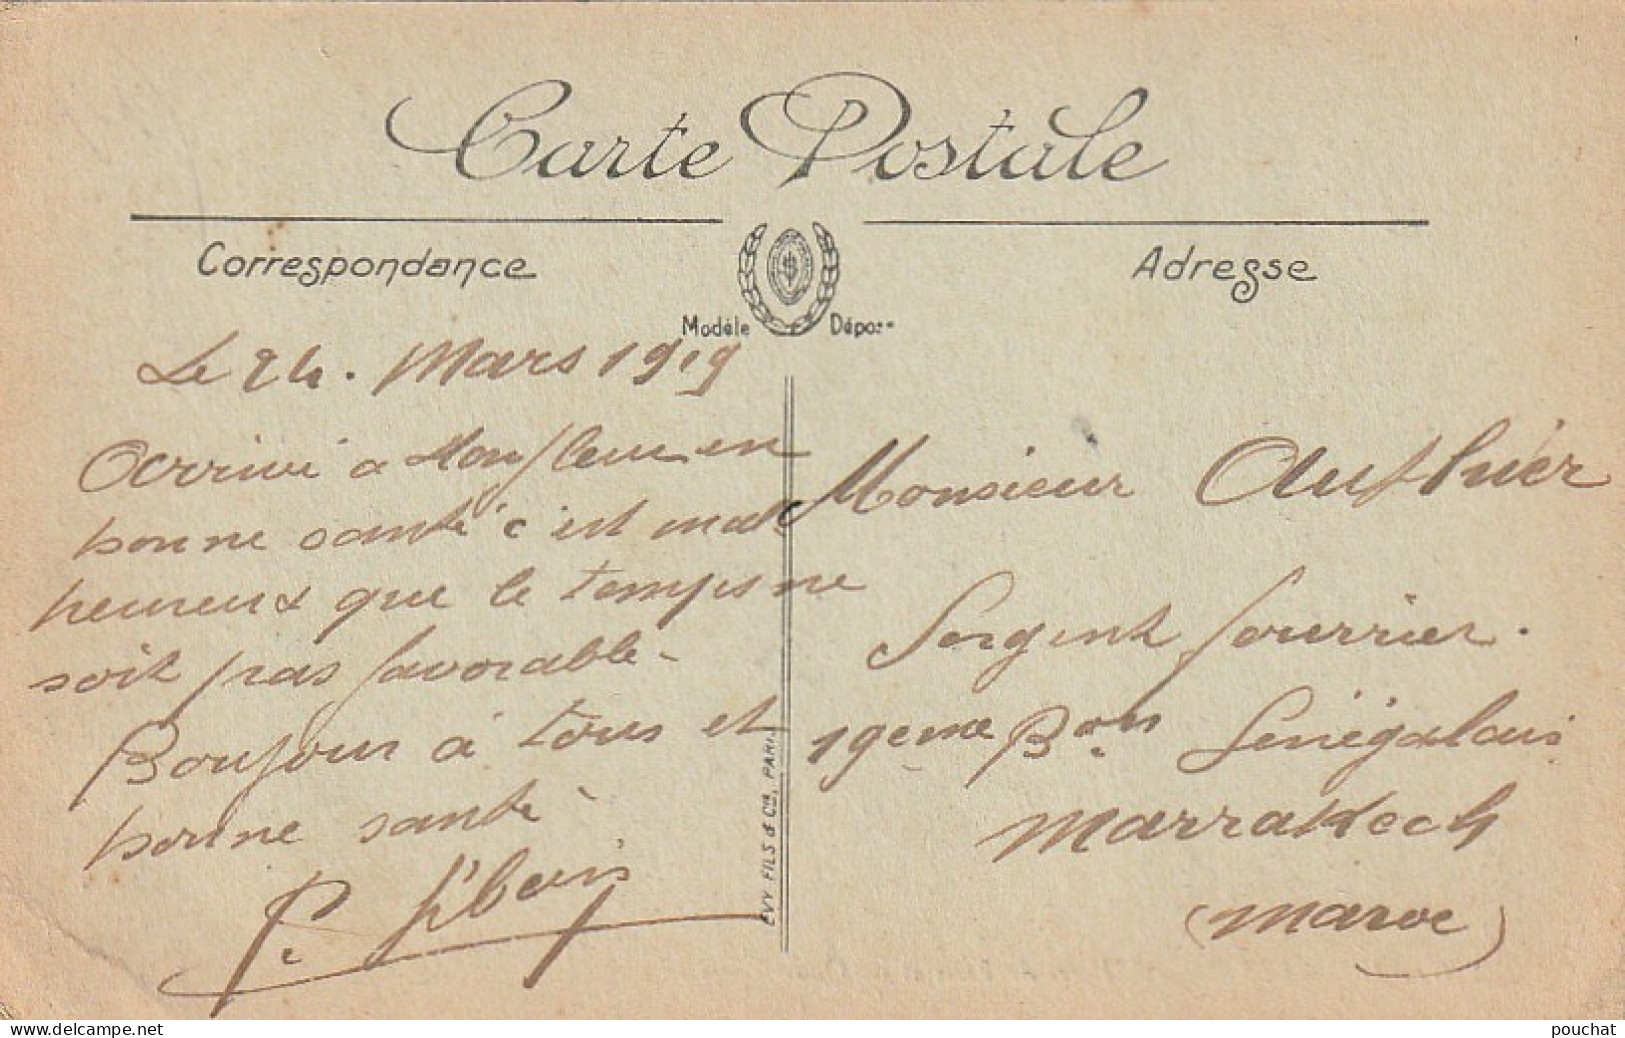 Carte Postale
Correspondance
Adresse
Modèle Déposé
Le 24. Mars 1919
Arrivé a Honfleur en
bonne santé c'est mal
heureux que le temps ne
soit pas favorable.
Boujour à tous et
bonne santé
P.
Monsieur Authier
Sergent fourrier.
19eme Bon Sénégalais
Marrakech
(Maroc)
EVY FILS & Cie, PARIS
www.delcampe.net
pouchat